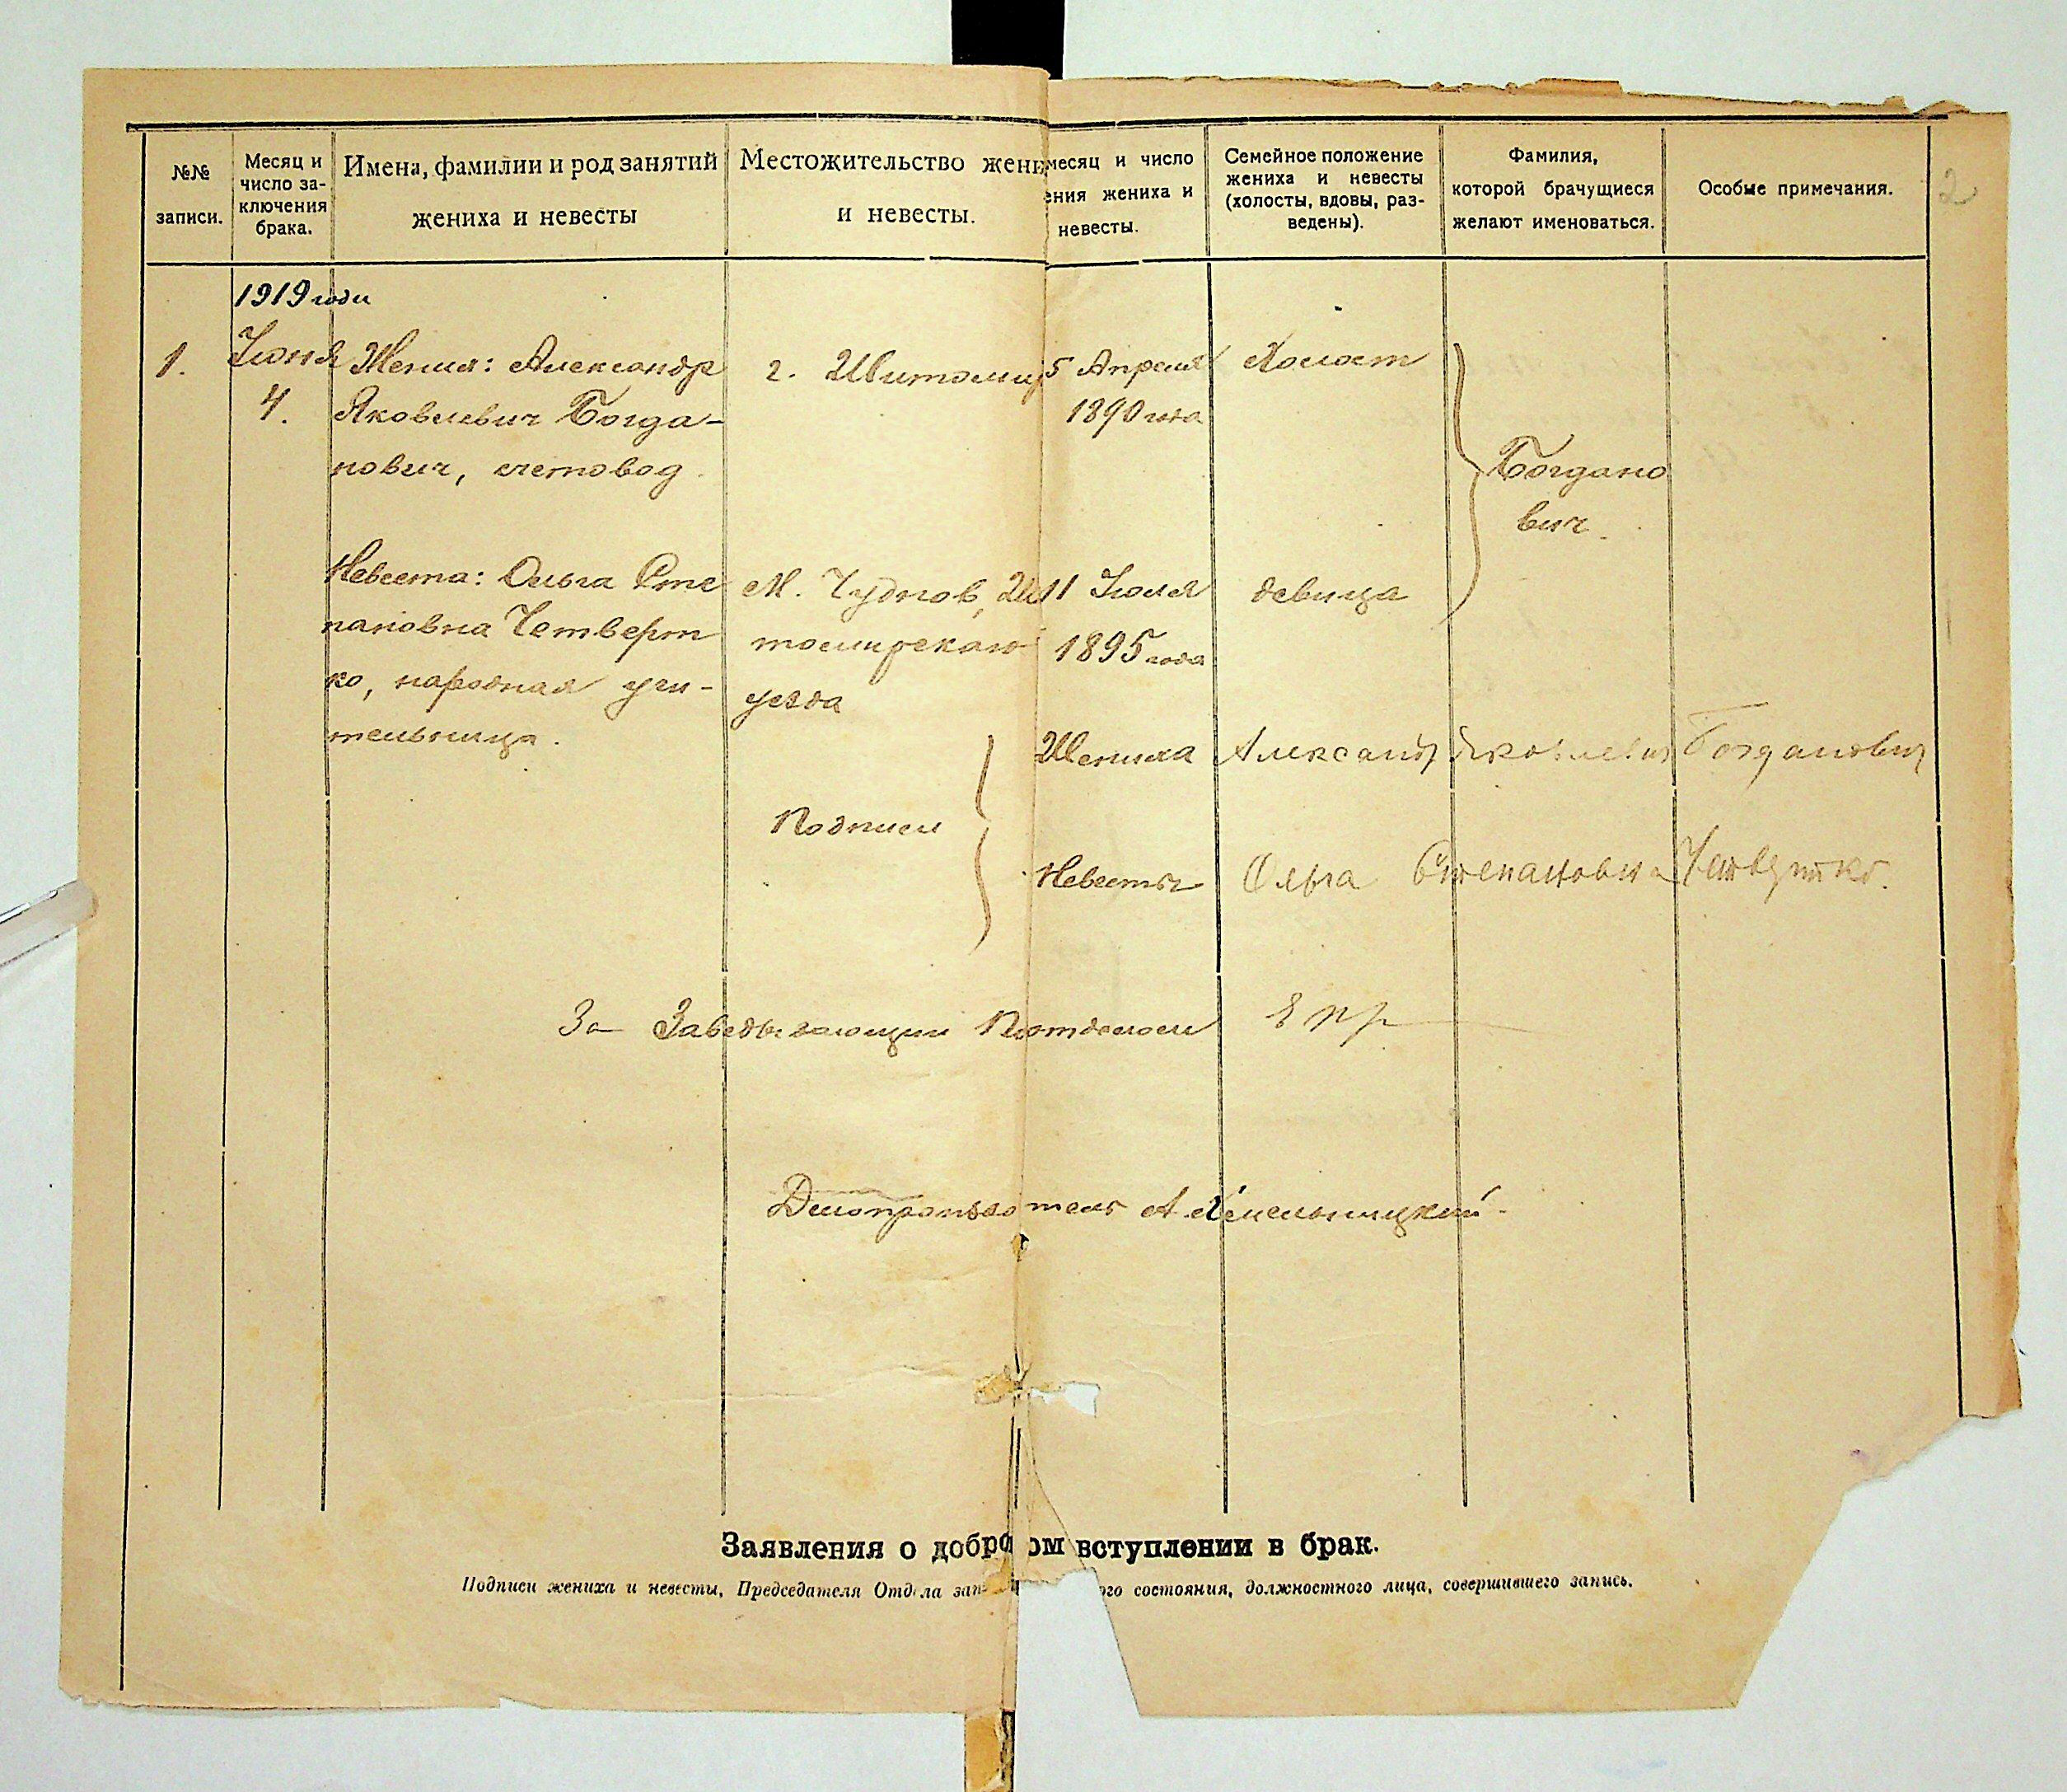 №№ записи.
Месяц и число за-
ключения брака.
Имена, фамилии и род занятий
жениха и невесты
Местожительство жени
и невесты.
месяц и число
ения жениха и
невесты.
Семейное положение
жениха и невесты
(холосты, вдовы, раз-
ведены).
Фамилия,
которой брачущиеся
желают именоваться.
Особые примечания.
2
1919 года
1.
Июня
4.
Жених: Александр
Яковлевич Богда-
нович, счетовод
г. Житомир
5 Апреля
1890 года
Холост
Богдано
вич.
Невеста: Ольга Сте
пановна Четверт
ко, народная учи-
тельница.
М. Чуднов, Жи
томирского
уезда
11 Июля
1895 года
девица
Подписи
Жениха Александр Яковлевич Богданович
Невесты Ольга Степановна Четвертко.
За Заведывающий Подотделом
Делопроизводитель А Хмельницкий
Заявления о добро ом вступлении в брак.
Подписи жениха и невесты, Председателя Отдела зап ого состояния, должностного лица, совершившего запись.